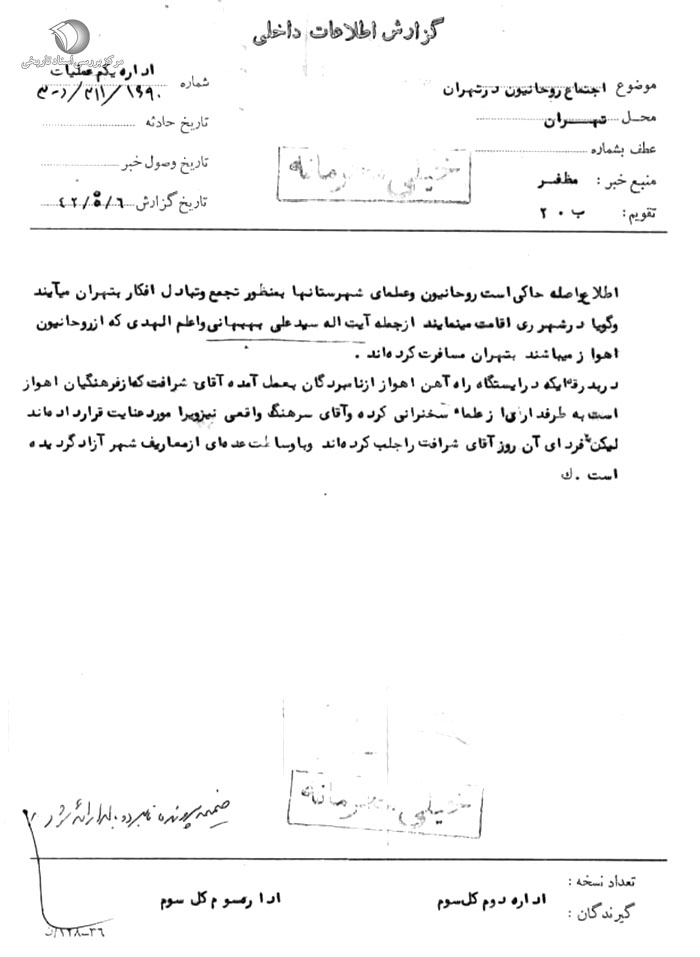 گزارش اطلاعات داخلی
مرکز بررسی اسناد تاریخی
موضوع اجتماع روحانیون در تهران
محل تهران
عطف بشماره
منبع خبر : مظفر
تقویم : ب ۲۰
اداره یکم عملیات
شماره ۳۱۱/۱۶۹۰
تاریخ حادثه
تاریخ وصول خبر
تاریخ گزارش ۴۲/۵/۶
خیلی محرمانه
اطلاع واصله حاکی است روحانیون وعلمای شهرستانها بمنظور تجمع وتبادل افکار بتهران میآیند
وگویا در شهر ری اقامت مینمایند ازجمله آیت اله سید علی بهبهانی واعلم الهدی که ازروحانیون
اهواز میباشند بتهران مسافرت کرده اند .
در بدرقه ایکه در ایستگاه راه آهن اهواز ازنامبردگان بعمل آمده آقای شرافت که از فرهنگیان اهواز
است به طرفداری از علماء سخنرانی کرده وآقای سرهنگ واقعی نیزویرا مورد عنایت قرارداده اند
لیکن فردای آن روز آقای شرافت را جلب کرده اند وباوساطت عده ای ازمعاریف شهر آزاد گردیده
است . ك
خیلی محرمانه
ضمیمه پرونده نامبرده
تعداد نسخه :
گیرندگان : اداره دوم کل سوم اداره سوم کل سوم
۳۶-۱۲۸/ث